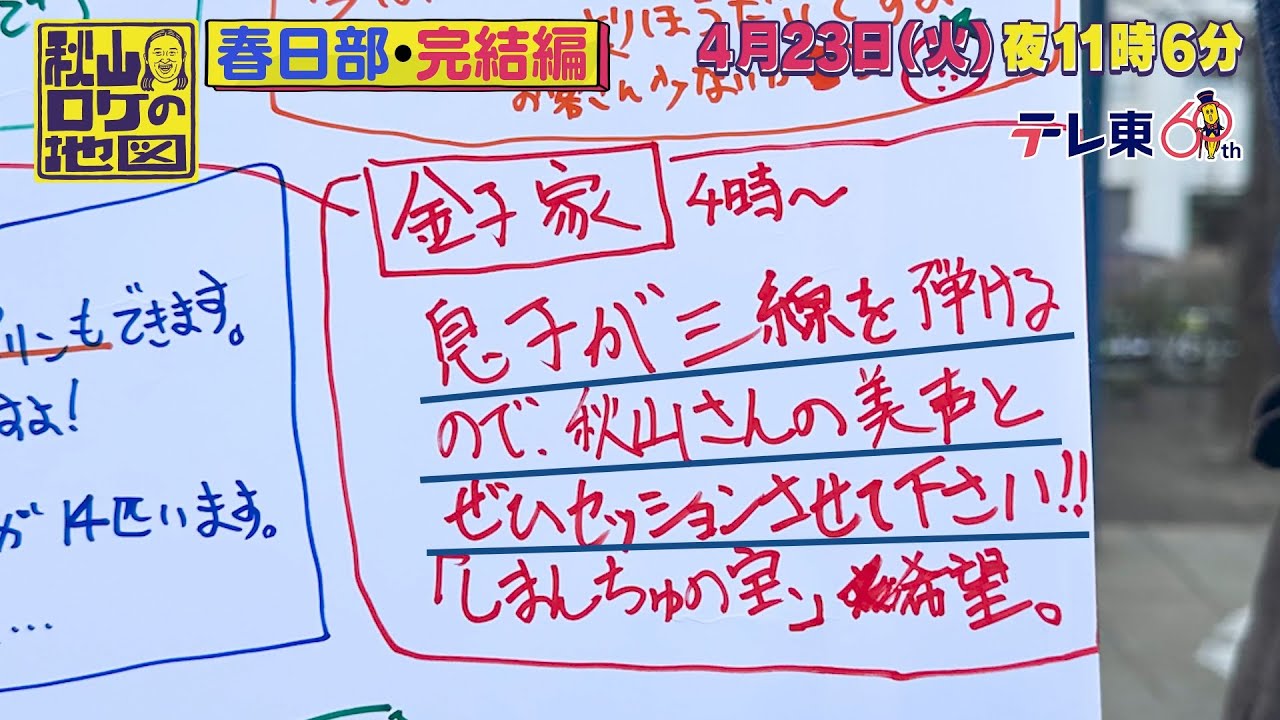 秋山
ロケの
地図
春日部・完結編
4月23日(火)夜11時6分
テレ東60th
りほうだいですよ
お客さん少ない
金子家
4時〜
息子が三線を弾ける
ので、秋山さんの美声と
ぜひセッションさせて下さい!!
「しまんちゅの宝」希望。
リンもできます。
すよ!
が14匹います。
...